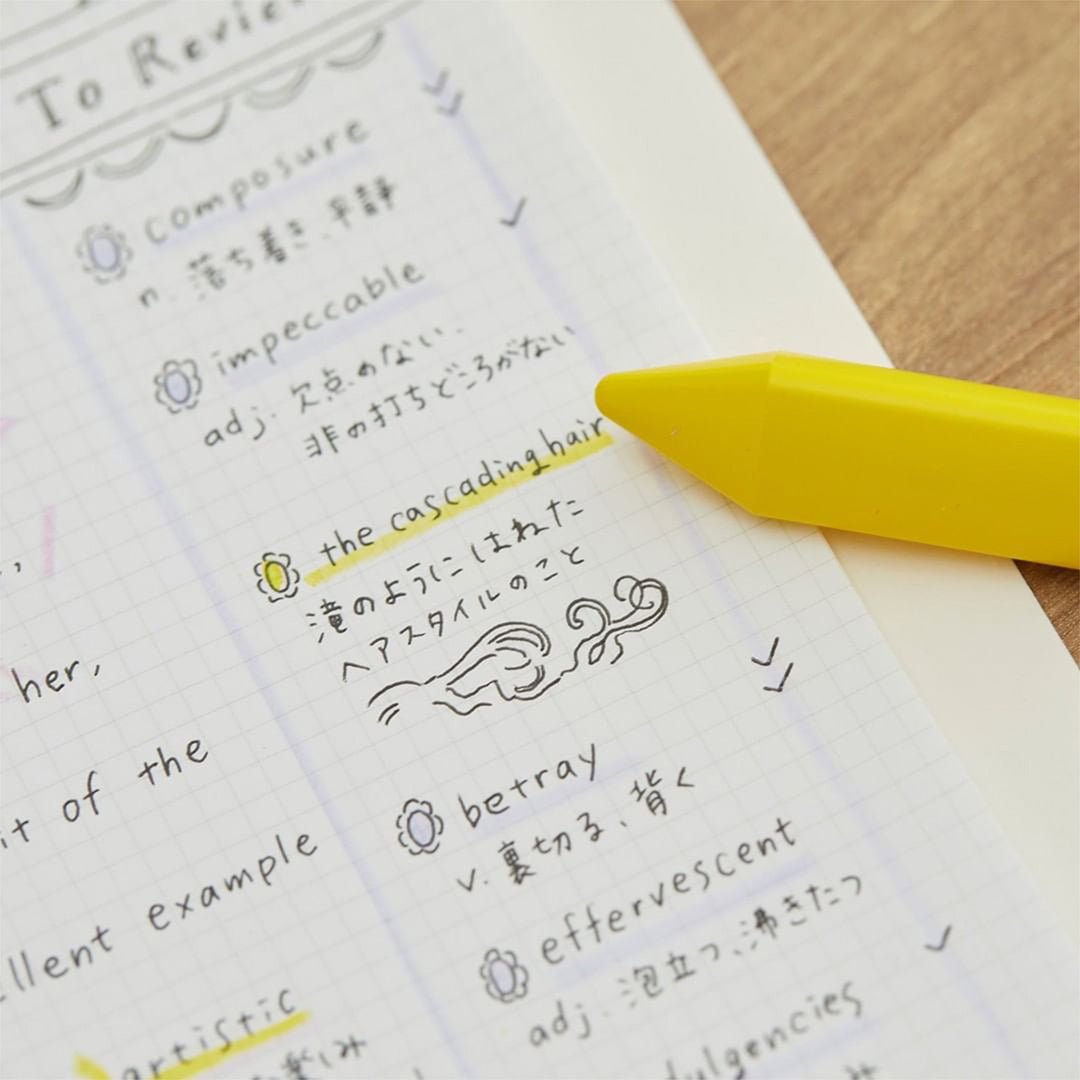 To Review
composure
n. 落ち着き、平静
impeccable
adj. 欠点のない.
非の打ちどころがない
the cascading hair
滝のようにはねた
ヘアスタイルのこと
her,
of the
betray
v. 裏切る、背く
example
effervescent
adj. 泡立つ、沸きたつ
artistic